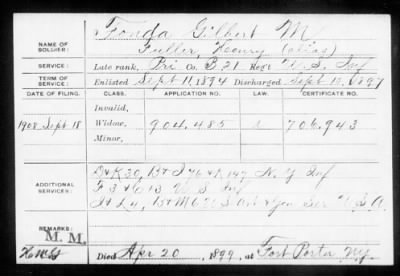 Fonda Gilbert M
NAME OF SOLDIER: Fuller, Henry (alias)
SERVICE: Late rank, Pri Co. B. 21 Reg't U.S. Inf
TERM OF SERVICE: Enlisted Sept 11, 1894 Discharged Sept 10, 1897
DATE OF FILING. CLASS. APPLICATION NO. LAW. CERTIFICATE NO.
Invalid,
1908 Sept 18 Widow, 904.485 706.943
Minor,
D & K 30, B & I 76 & K 147 N.Y. Inf
ADDITIONAL SERVICES: F 3 & G 13 U S Inf
& Gen Ser U S A
REMARKS:
M. M.
Died Apr 20, 1899, at Fort Porter N.Y.